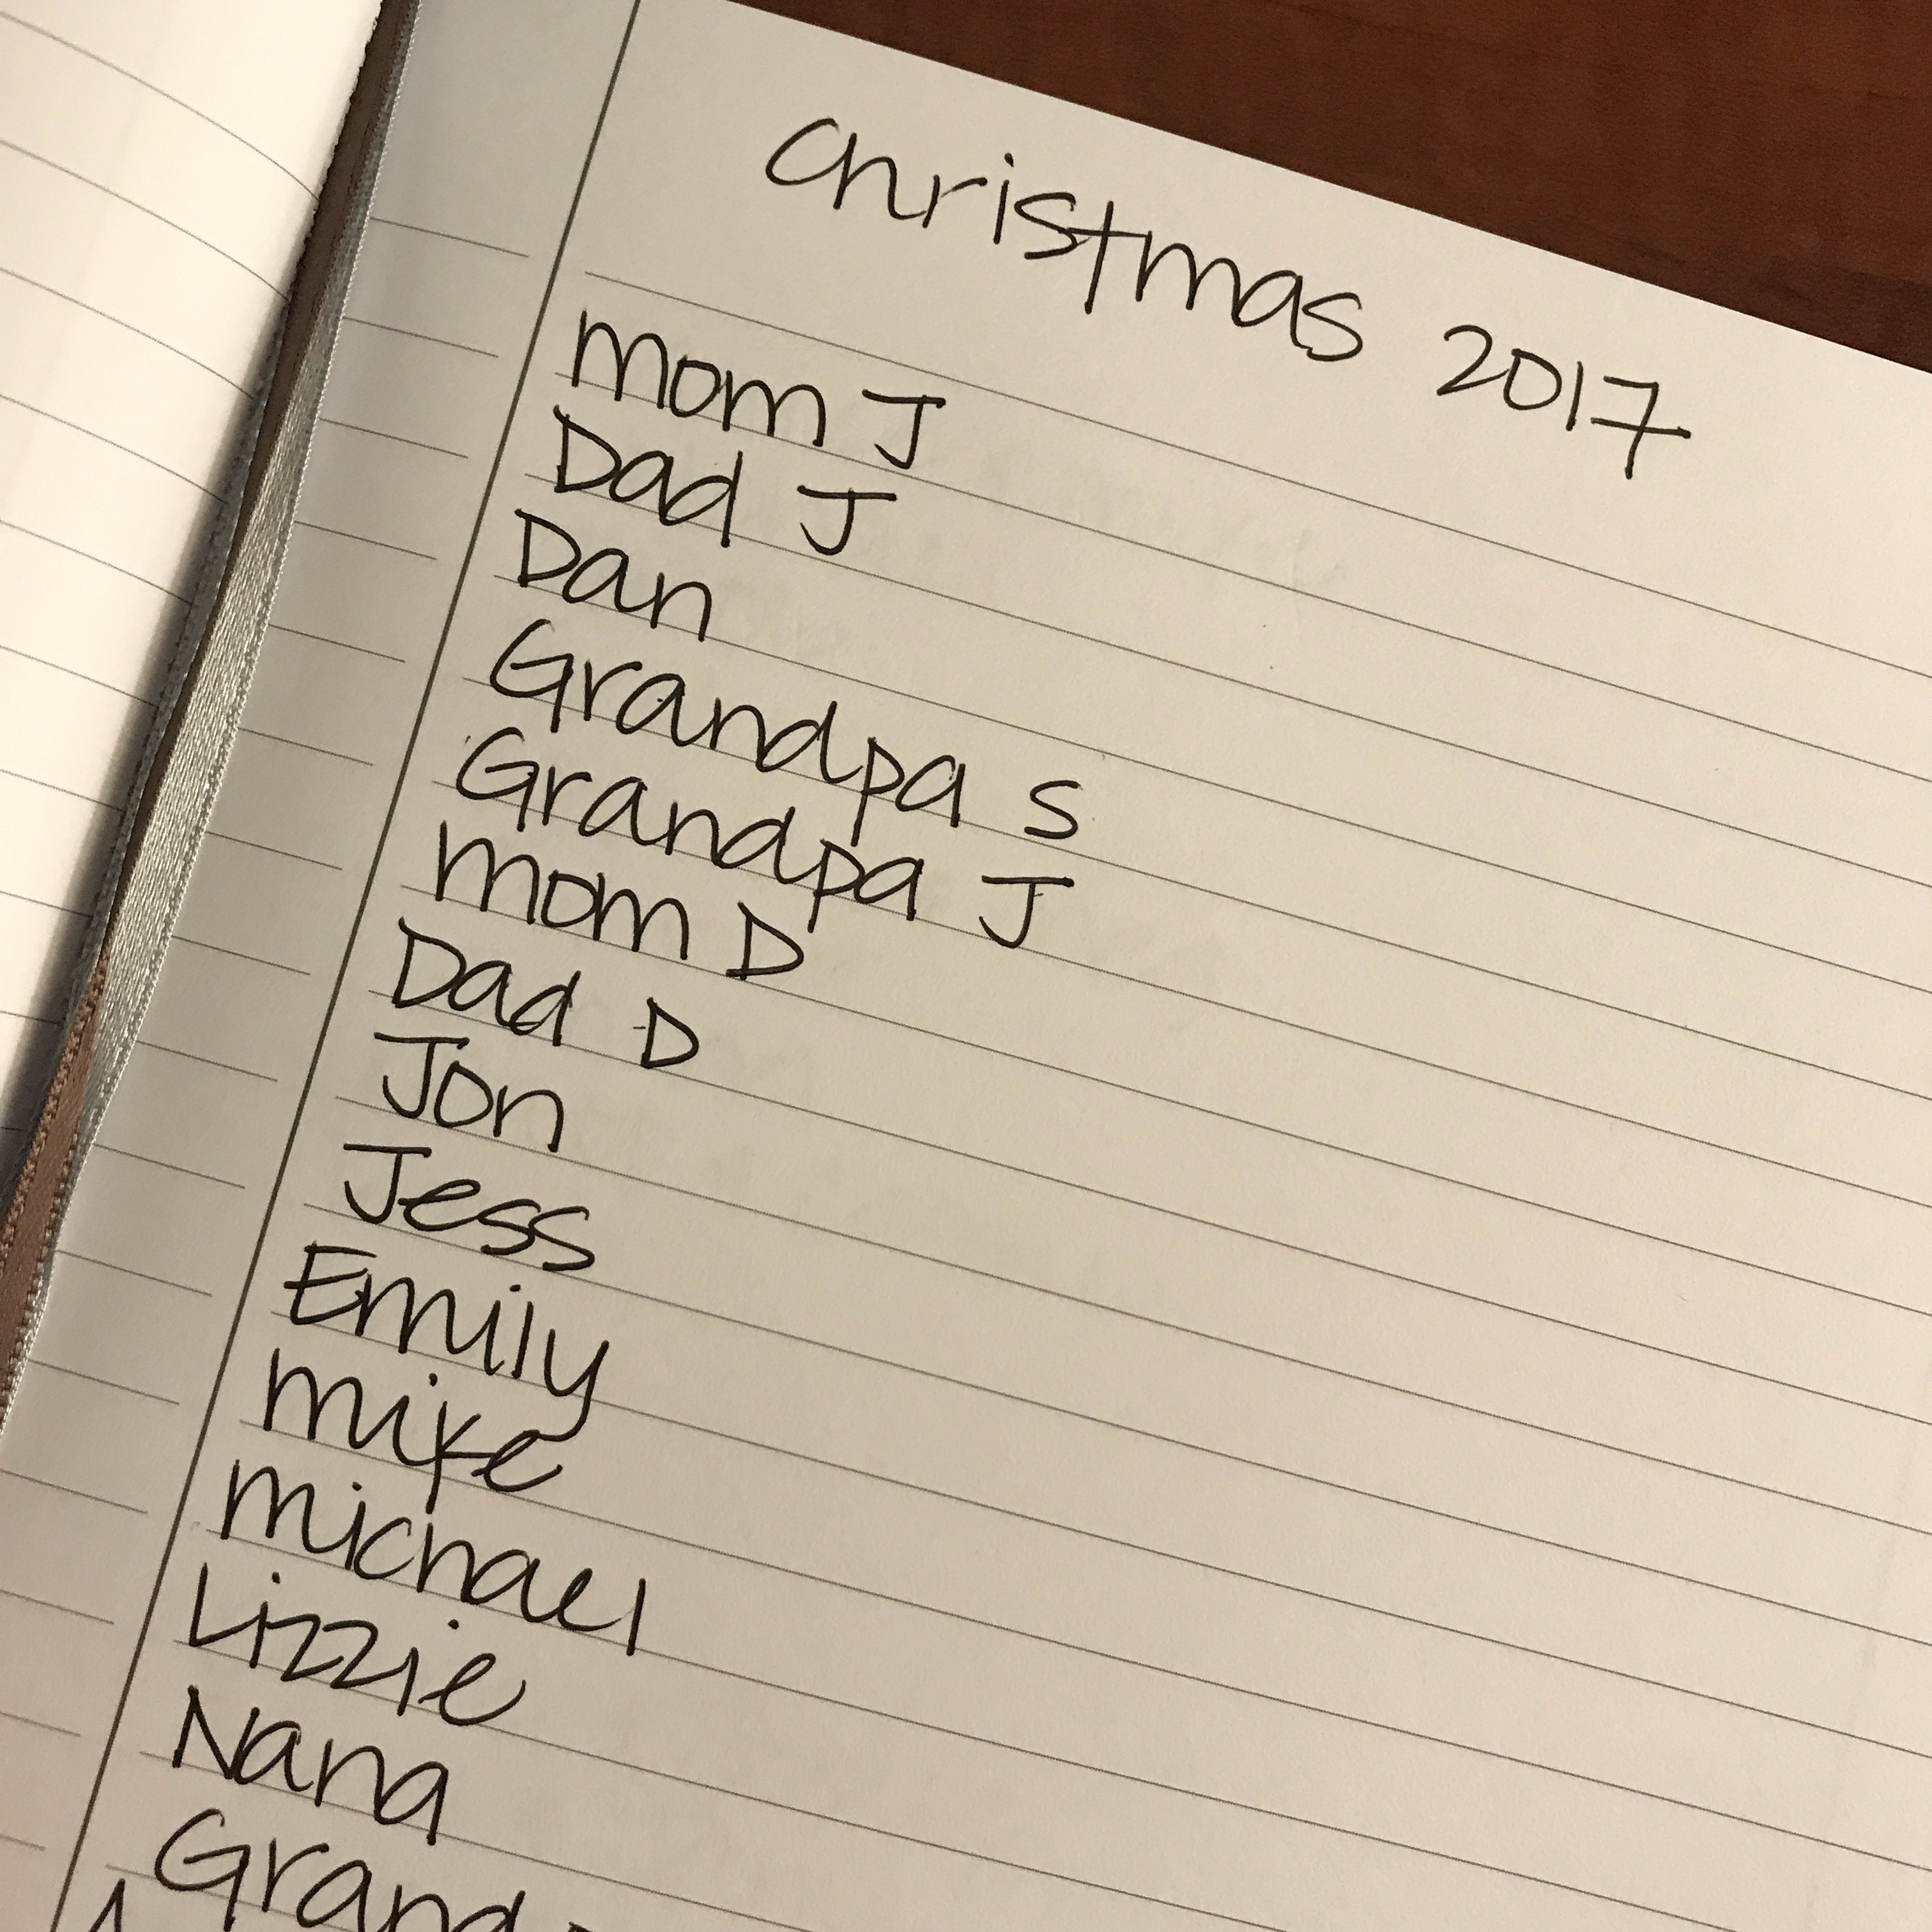 Christmas 2017
Mom J
Dad J
Dan
Grandpa S
Grandpa J
Mom D
Dad D
Jon
Jess
Emily
Mike
Michael
Lizzie
Nana